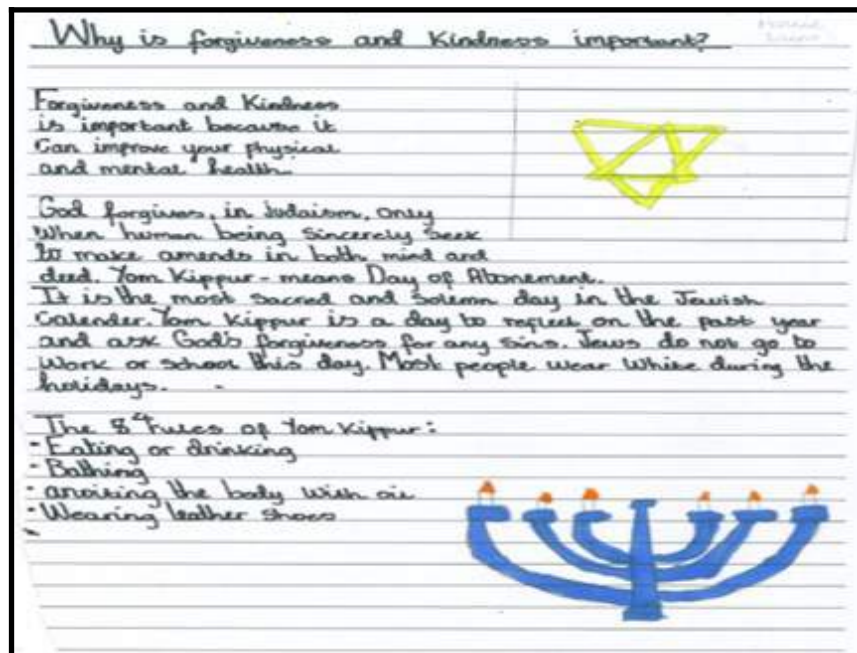 Why is forgiveness and Kindness important?
Forgiveness and Kindness
is important because it
Can improve your physical
and mental health.
God forgives, in Judaism, only
When human being sincerely seek
to make amends in both mind and
deed. Yom Kippur - means Day of Atonement.
It is the most sacred and solemn day in the Jewish
Calender. Yom Kippur is a day to reflect on the past year
and ask God's forgiveness for any sins. Jews do not go to
Work or school this day. Most people wear White during the
holidays.
The rules of Yom Kippur:
- Eating or drinking
- Bathing
- anoiting the body with oil
- Wearing leather shoes